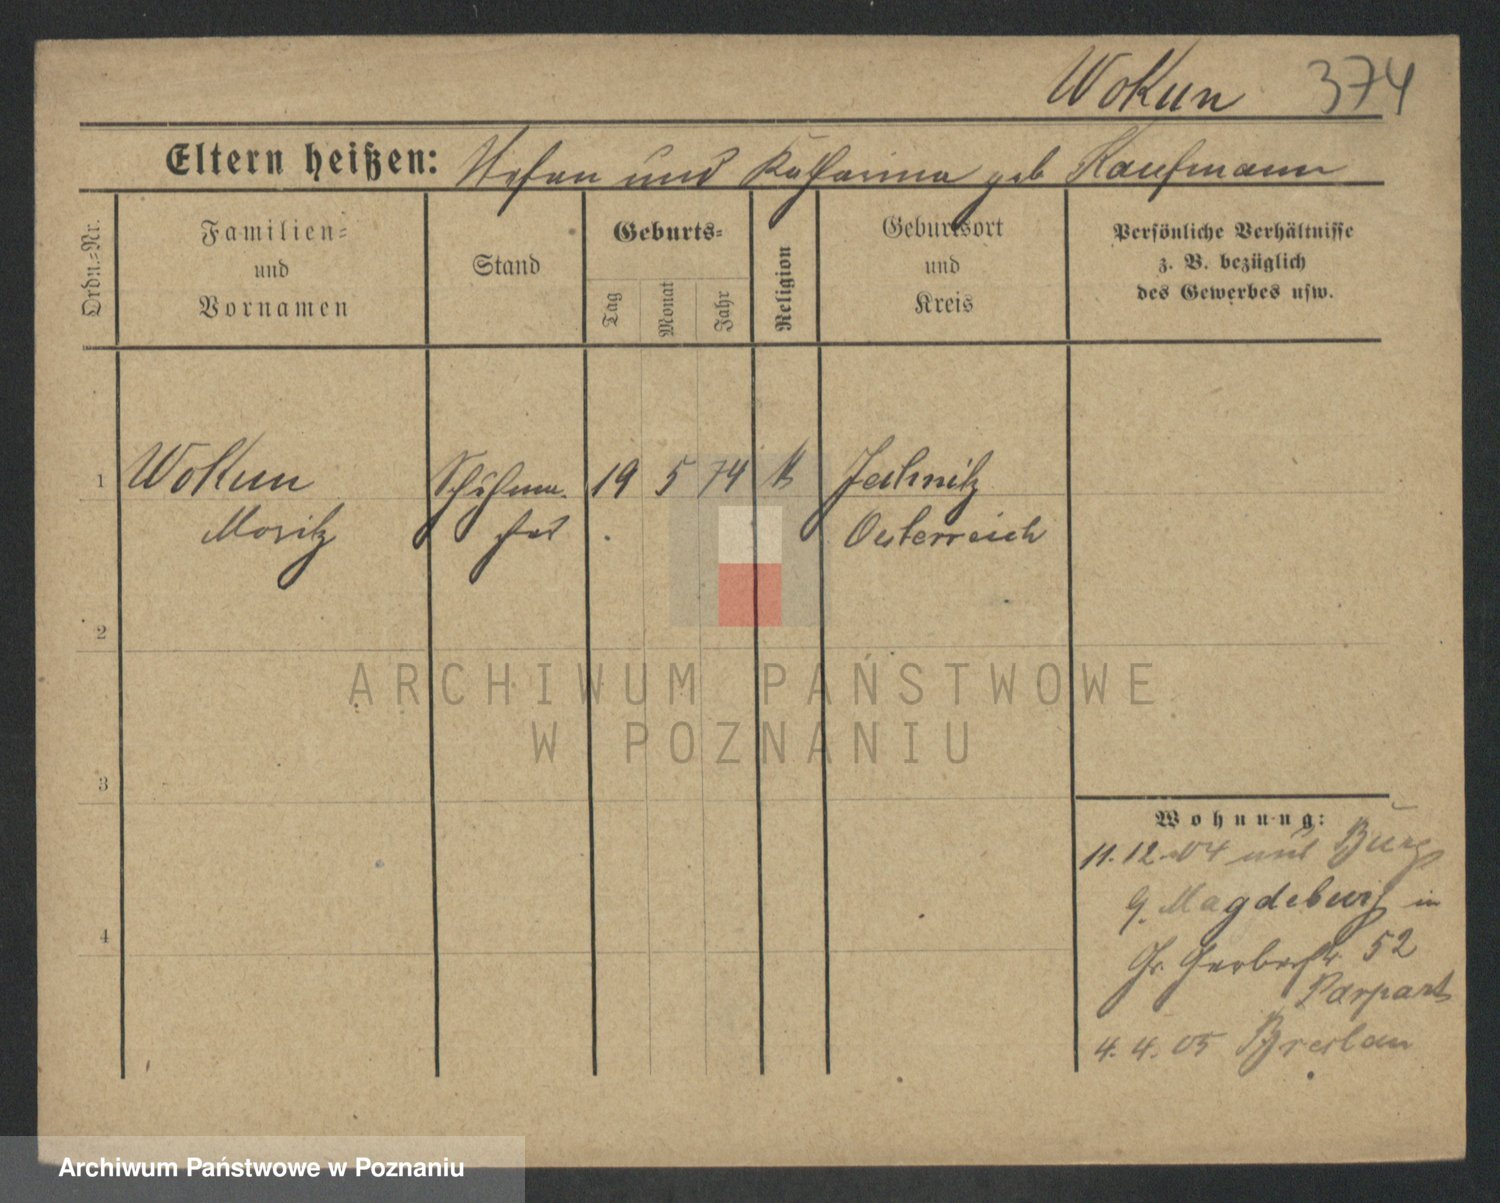 Wokun 374
Eltern heißen: Stefan und Katharina geb Kaufmann
Ordn.-Nr.
Familien-
und
Vornamen
Stand
Geburts-
Tag
Monat
Jahr
Religion
Geburtsort
und
Kreis
Persönliche Verhältnisse
z. B. bezüglich
des Gewerbes usw.
1 Wokun 19 5 74 k
Moritz Oesterreich
2
3
4
Wohnung:
11.12.04 Burg
Magdeburg in
Gr. Gerberstr. 52
Parpart
4.4.05 Breslau
ARCHIWUM PAŃSTWOWE
W POZNANIU
Archiwum Państwowe w Poznaniu